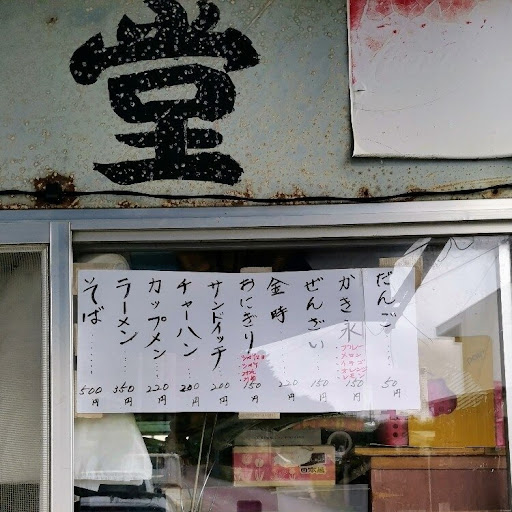 堂
だんご ..... 50円
かき氷 ... 150円
ぜんざい .. 150円
金時 ..... 220円
おにぎり 150円
サンドイッチ ... 200円
チャーハン ... 200円
カップメン ... 220円
ラーメン ..... 350円
そば ........ 500円